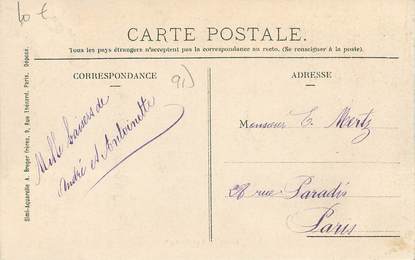 10 €
CARTE POSTALE.
Tous les pays étrangers n'acceptent pas la correspondance au recto. (Se renseigner à la poste).
CORRESPONDANCE
ADRESSE
91)
Mille baisers de
André et Antoinette
Monsieur E. Moertz
28 rue Paradis
Paris
Simi-Aquarelle A. Breger frères, 9, Rue Thénard, Paris. Déposé.